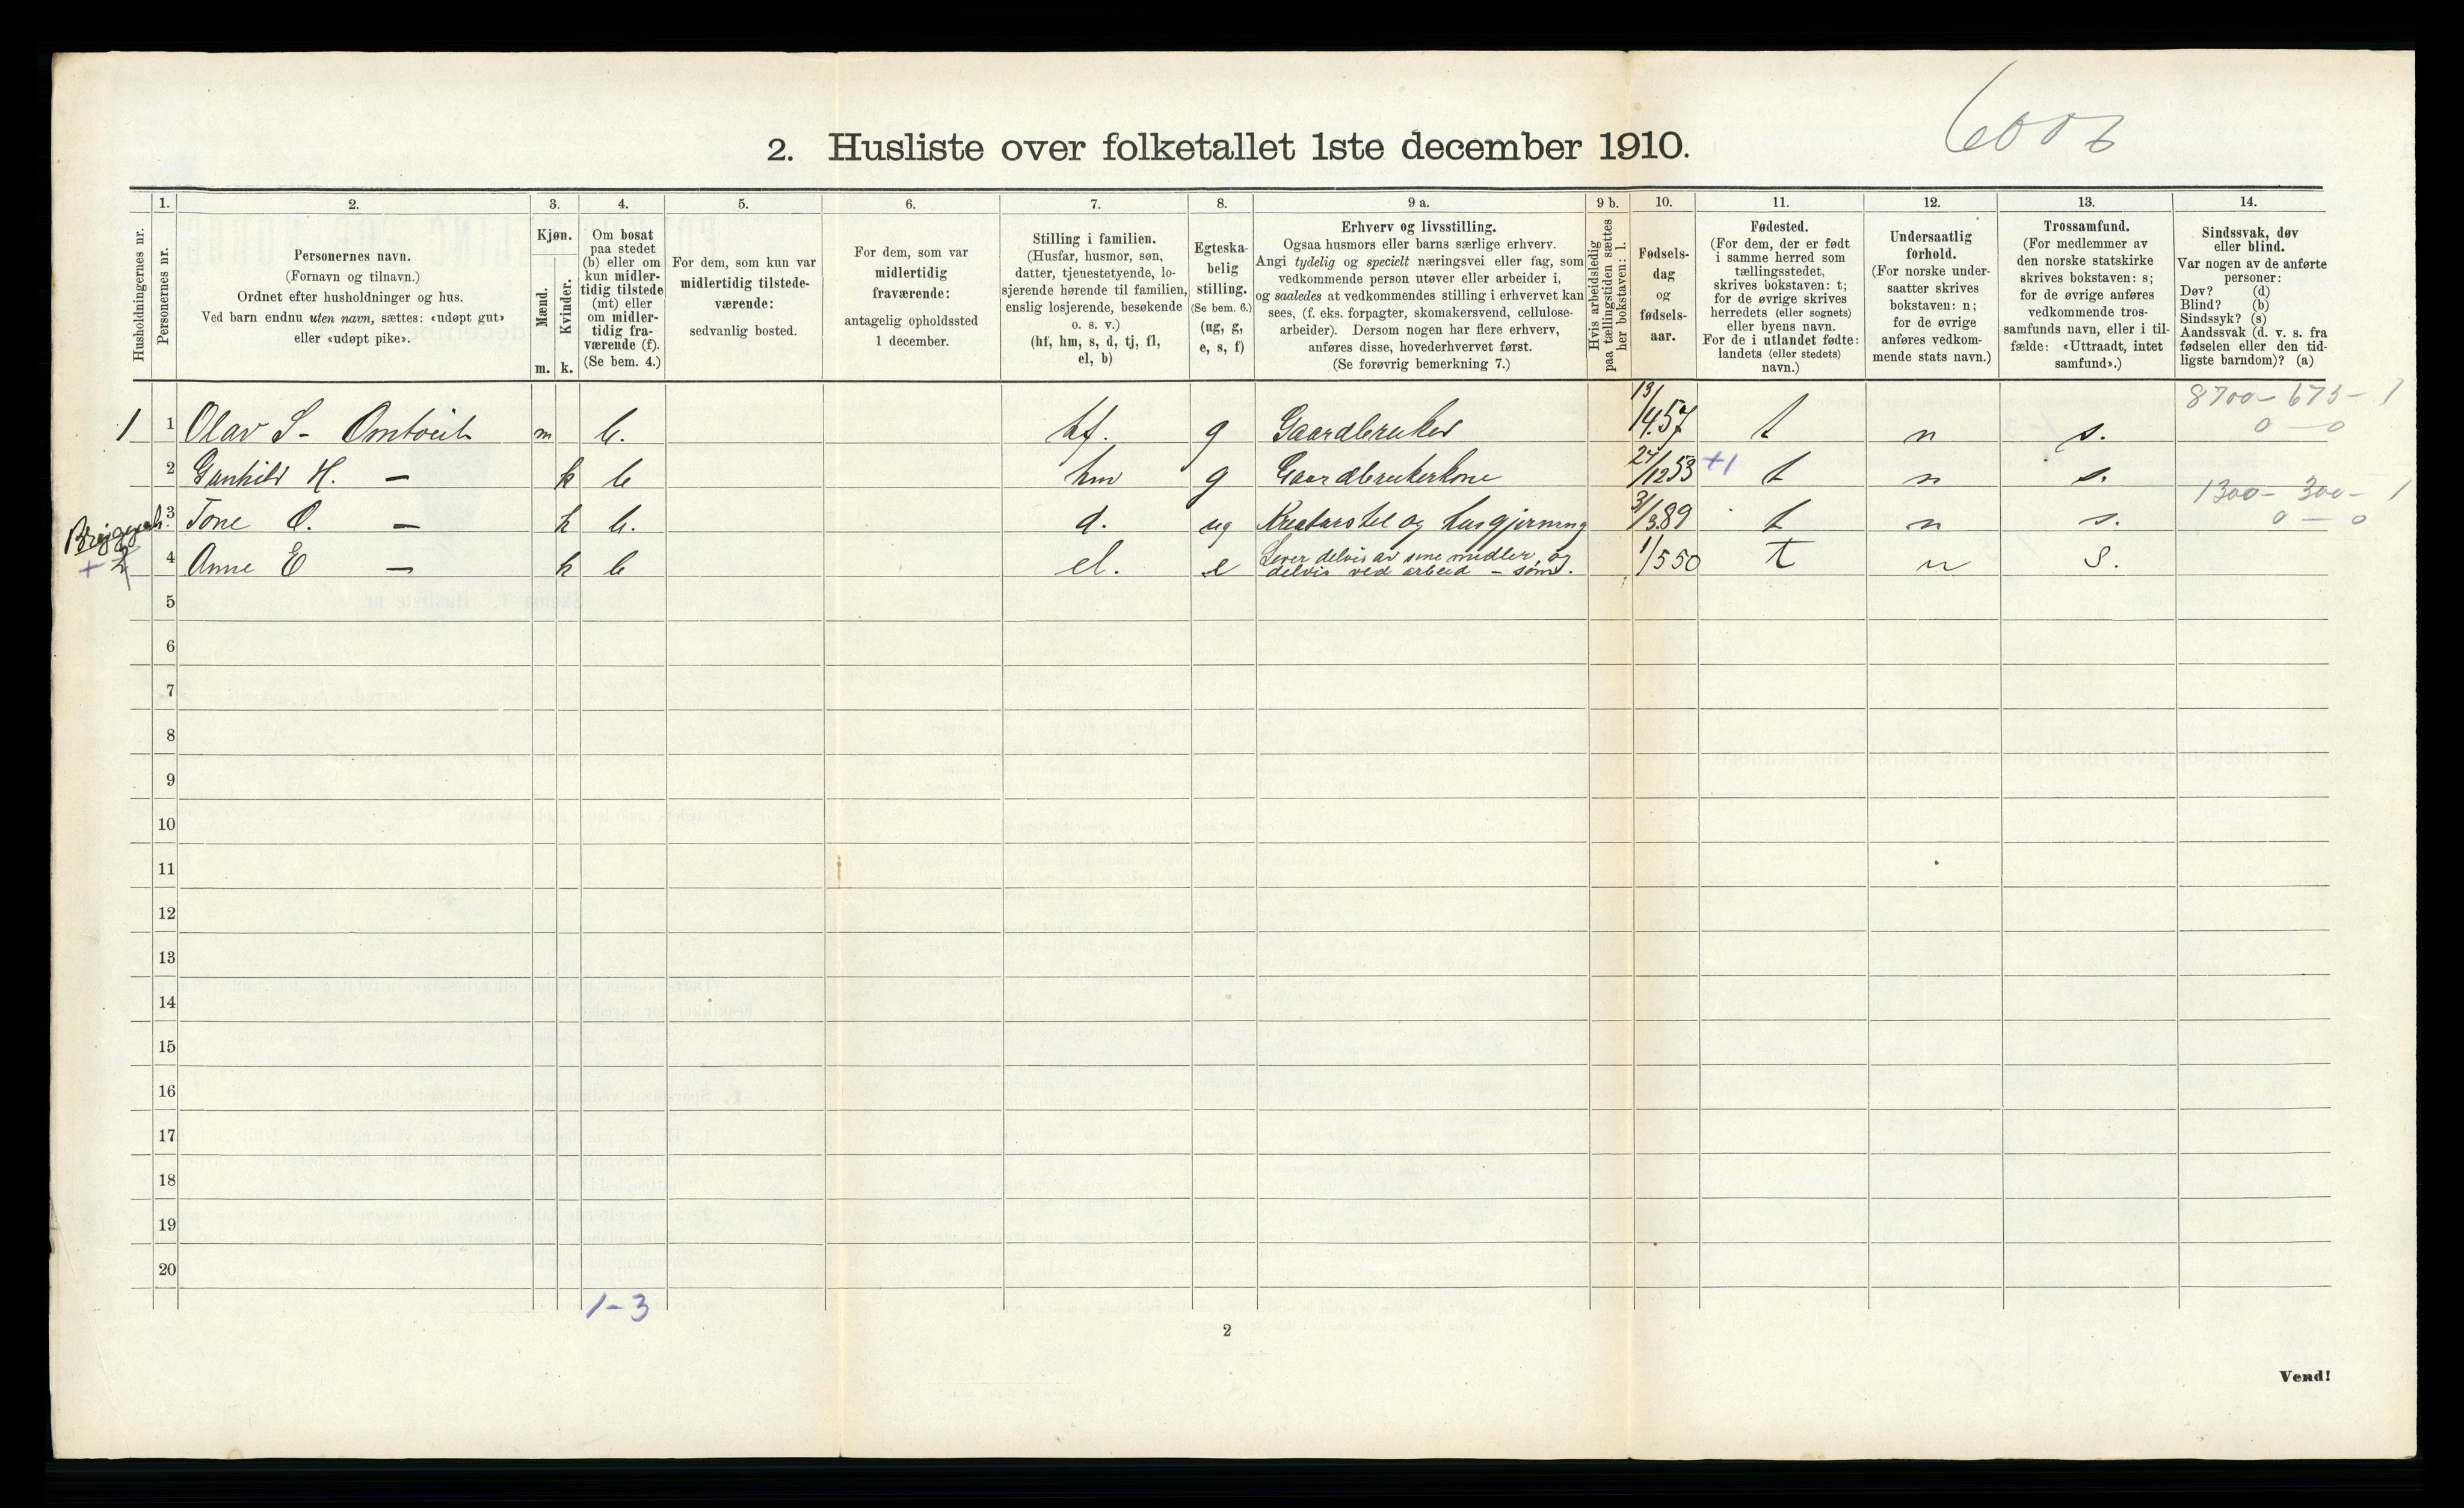 6006
2. Husliste over folketallet 1ste december 1910.
Husholdningernes nr.
1.
Personernes nr.
2.
Personernes navn.
(Fornavn og tilnavn.)
Ordnet efter husholdninger og hus.
Ved barn endnu uten navn, sættes: «udøpt gut»
eller «udøpt pike».
3.
Kjøn.
Mænd.
Kvinder.
m. k.
4.
Om bosat
paa stedet
(b) eller om
kun midler-
tidig tilstede
(mt) eller
om midler-
tidig fra-
værende (f).
(Se bem. 4.)
5.
For dem, som kun var
midlertidig tilstede-
værende:
sedvanlig bosted.
6.
For dem, som var
midlertidig
fraværende:
antagelig opholdssted
1 december.
7.
Stilling i familien.
(Husfar, husmor, søn,
datter, tjenestetyende, lo-
sjerende hørende til familien,
enslig losjerende, besøkende
o. s. v.)
(hf, hm, s, d, tj, fl,
el, b)
8.
Egteska-
belig
stilling.
(Se bem. 6.)
(ug, g,
e, s, f)
9 a.
Erhverv og livsstilling.
Ogsaa husmors eller barns særlige erhverv.
Angi tydelig og specielt næringsvei eller fag, som
vedkommende person utøver eller arbeider i,
og saaledes at vedkommendes stilling i erhvervet kan
sees, (f. eks. forpagter, skomakersvend, cellulose-
arbeider). Dersom nogen har flere erhverv,
anføres disse, hovederhvervet først.
(Se forøvrig bemerkning 7.)
9 b.
Hvis arbeidsledig
paa tællingstiden sættes
her bokstaven: l.
10.
Fødsels-
dag
og
fødsels-
aar.
11.
Fødested.
(For dem, der er født
i samme herred som
tællingsstedet,
skrives bokstaven: t;
for de øvrige skrives
herredets (eller sognets)
eller byens navn.
For de i utlandet fødte:
landets (eller stedets)
navn.)
12.
Undersaatlig
forhold.
(For norske under-
saatter skrives
bokstaven: n;
for de øvrige
anføres vedkom-
mende stats navn.)
13.
Trossamfund.
(For medlemmer av
den norske statskirke
skrives bokstaven: s;
for de øvrige anføres
vedkommende tros-
samfunds navn, eller i til-
fælde: «Uttraadt, intet
samfund».)
14.
Sindssvak, døv
eller blind.
Var nogen av de anførte
personer:
Døv? (d)
Blind? (b)
Sindssyk? (s)
Aandssvak (d. v. s. fra
fødselen eller den tid-
ligste barndom)? (a)
8700 - 675 - 1
0 - 0
1 1 Olav S - m b. hf. g Gaardbruker 13/4 57 t n s.
2 Gunhild H. — k b hm g Gaardbrukerkone 24/12 53 +1 t n s.
1300 - 300 - 1
0 - 0
3 Tone O. — k b. d. ug Kreaturstel og husgjerning 3/3 89 t n s.
+ 2 4 Anne E — k b el. e Lever delvis av sine midler og
delvis ved arbeid - søm. 1/5 50 t n s.
5
6
7
8
9
10
11
12
13
14
15
16
17
18
19
20
1-3
2
Vend!